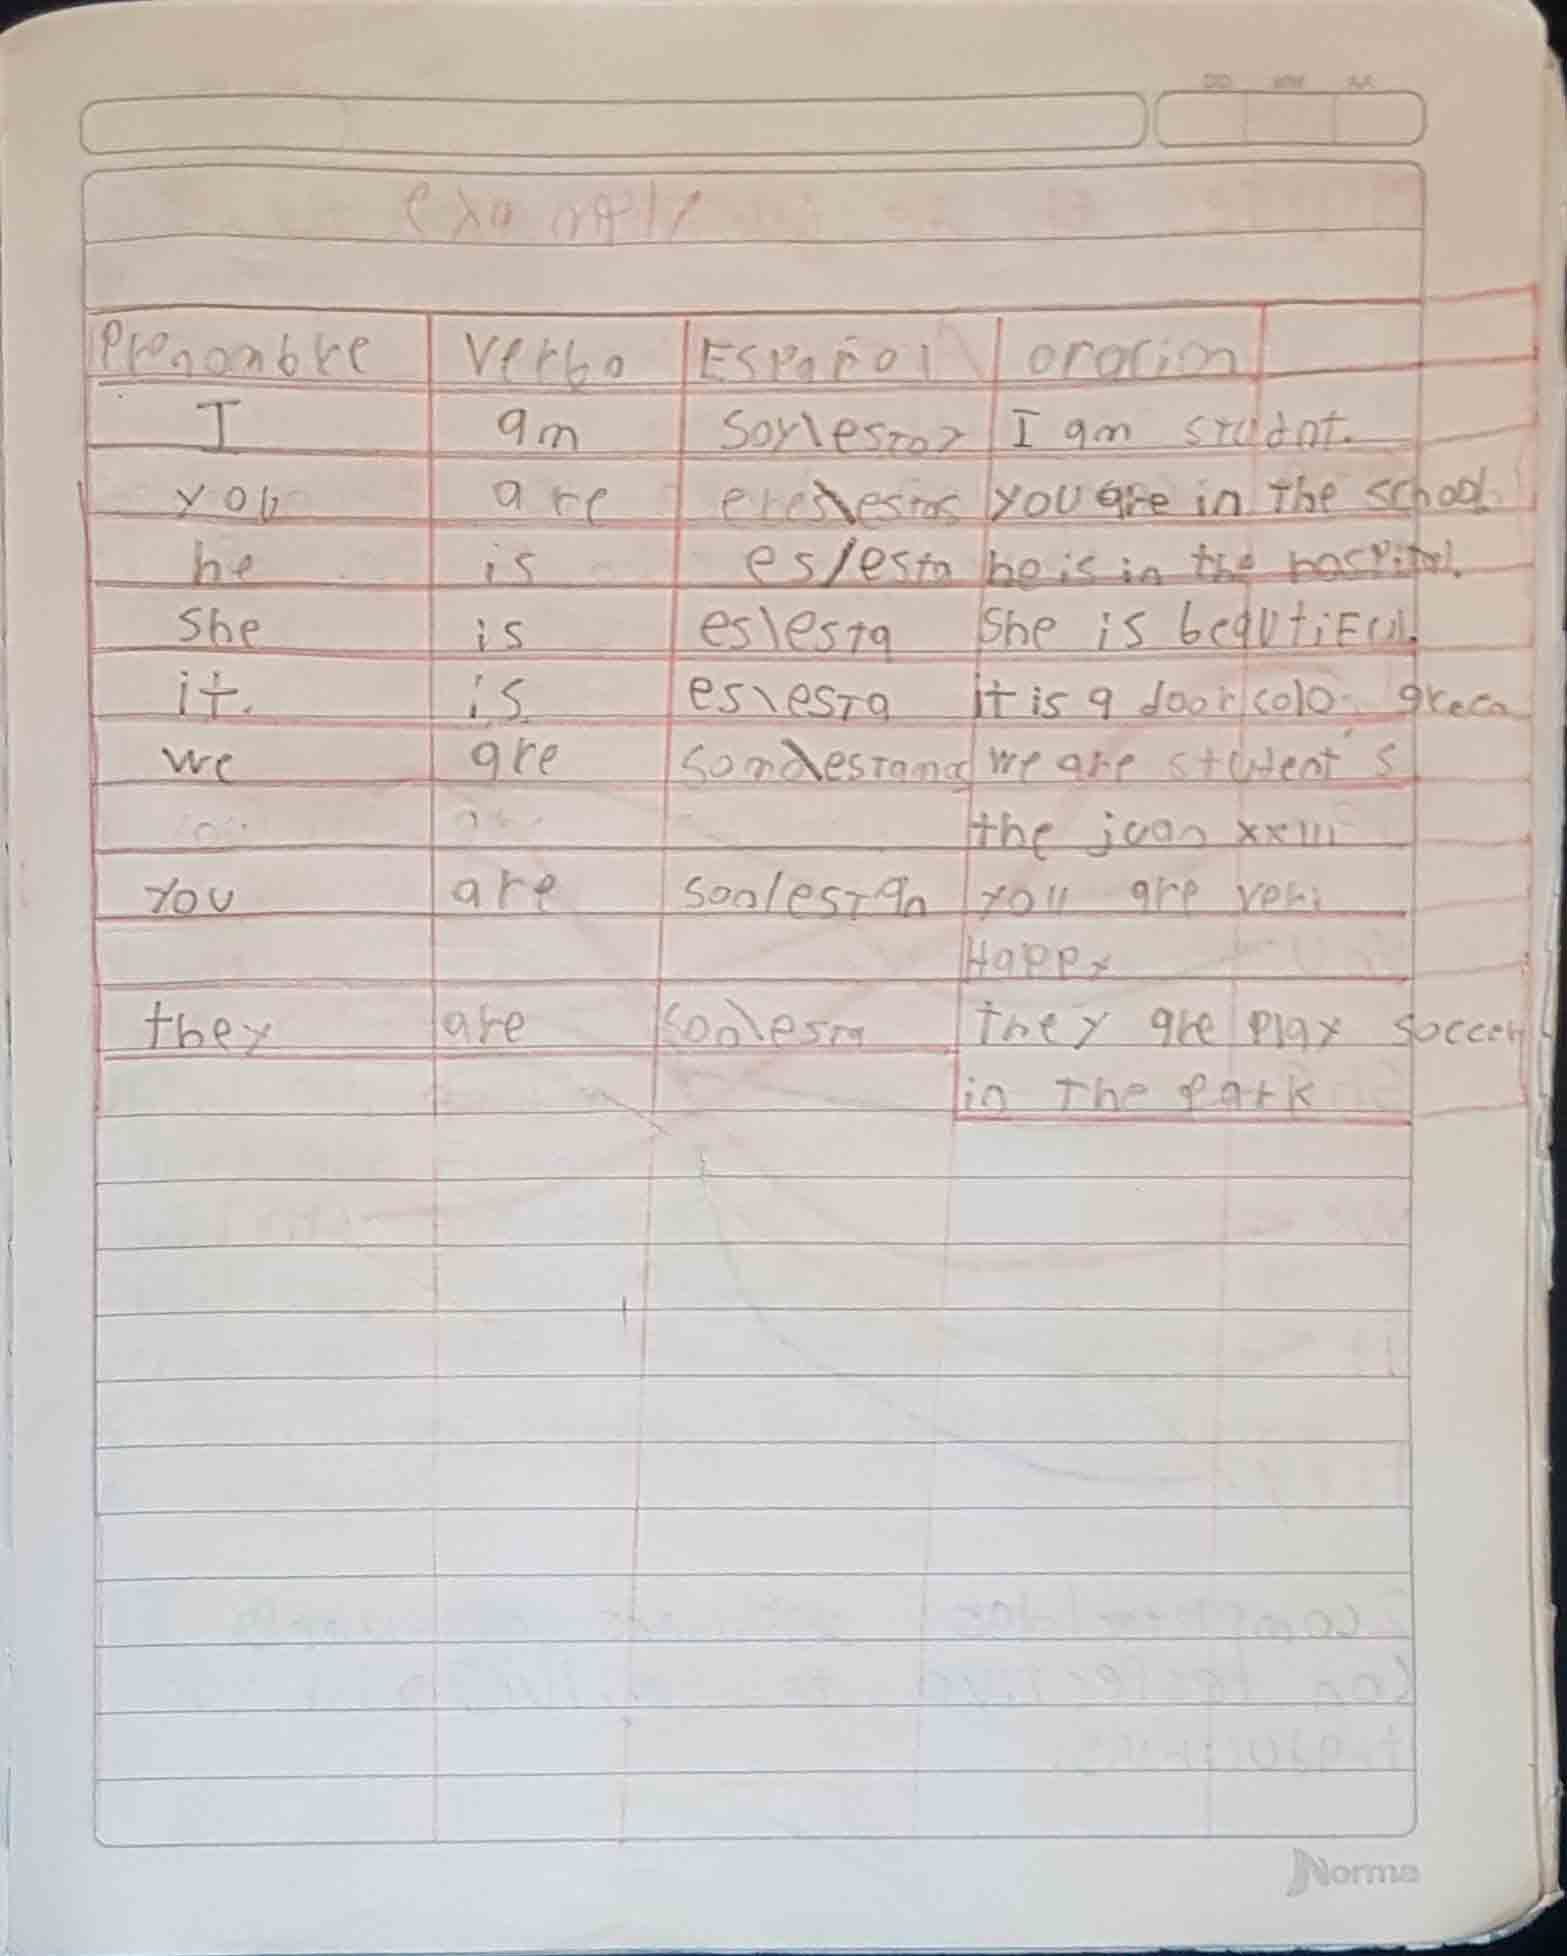 example
Pronombre Verbo Español oracion
I am soy\estoy I am studnt.
you are eres\estas you are in the school.
he is es/esta he is in the hospital.
she is es\esta She is beautiFul.
it. is es\esta it is a door colo green
we are we are student's
the juan xxiii
you are son/estan you are veri
Happy
they are son\esta they are play soccer
in The park
Norma